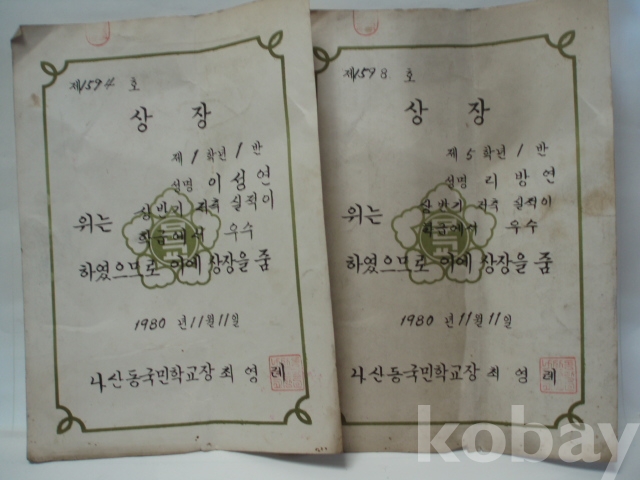 제1594 호
상 장
제 1 학년 1 반
성명 이성연
상반기 저축 실적이
위는
학급에서 우수
하였으므로 이에 상장을 줌
1980 년 11월 11일
나산동국민학교장 최 영 례
제1598 호
상 장
제 5 학년 1 반
성명 리 방 연
상반기 저축 실적이
위는
학급에서 우수
하였으므로 이에 상장을 줌
1980 년 11월 11일
나산동국민학교장 최 영 례
kobay